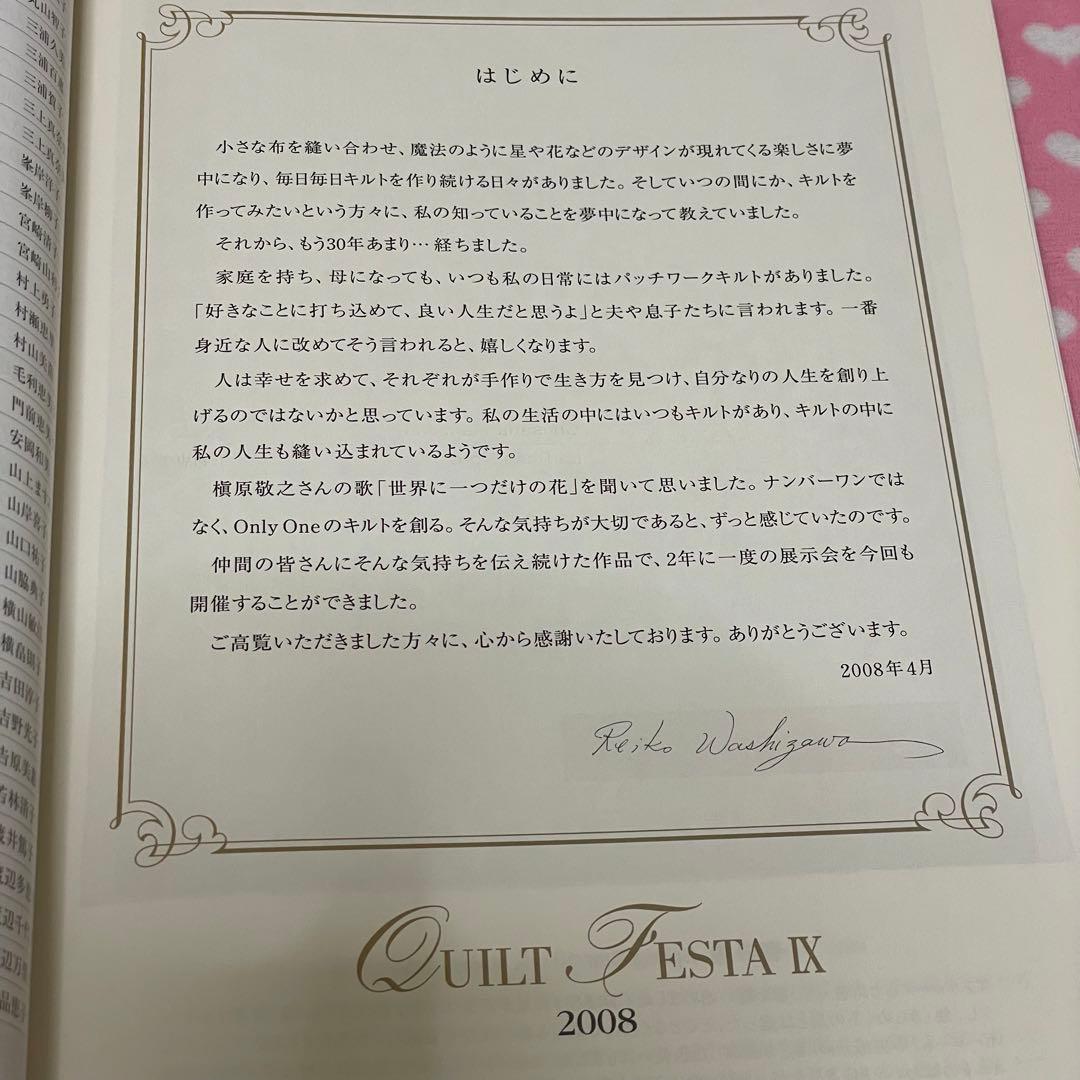 はじめに
小さな布を縫い合わせ、魔法のように星や花などのデザインが現れてくる楽しさに夢
中になり、毎日毎日キルトを作り続ける日々がありました。そしていつの間にか、キルトを
作ってみたいという方々に、私の知っていることを夢中になって教えていました。
それから、もう30年あまり…経ちました。
家庭を持ち、母になっても、いつも私の日常にはパッチワークキルトがありました。
「好きなことに打ち込めて、良い人生だと思うよ」と夫や息子たちに言われます。一番
身近な人に改めてそう言われると、嬉しくなります。
人は幸せを求めて、それぞれが手作りで生き方を見つけ、自分なりの人生を創り上
げるのではないかと思っています。私の生活の中にはいつもキルトがあり、キルトの中に
私の人生も縫い込まれているようです。
槇原敬之さんの歌「世界に一つだけの花」を聞いて思いました。ナンバーワンでは
なく、Only Oneのキルトを創る。そんな気持ちが大切であると、ずっと感じていたのです。
仲間の皆さんにそんな気持ちを伝え続けた作品で、2年に一度の展示会を今回も
開催することができました。
ご高覧いただきました方々に、心から感謝いたしております。ありがとうございます。
2008年4月
Reiko Washizawa
QUILT FESTA IX
2008
三浦久美
三浦賀子
峯岸洋子
峯岸柳子
宮崎清子
村上勇子
村瀬恵
村山美
毛利恵美
門前恵美
安岡和美
山上ます
山岸喜子
山口祐子
山脇典子
横山敏
横畠囲子
吉田淳子
吉野光子
吉原美
若林清子